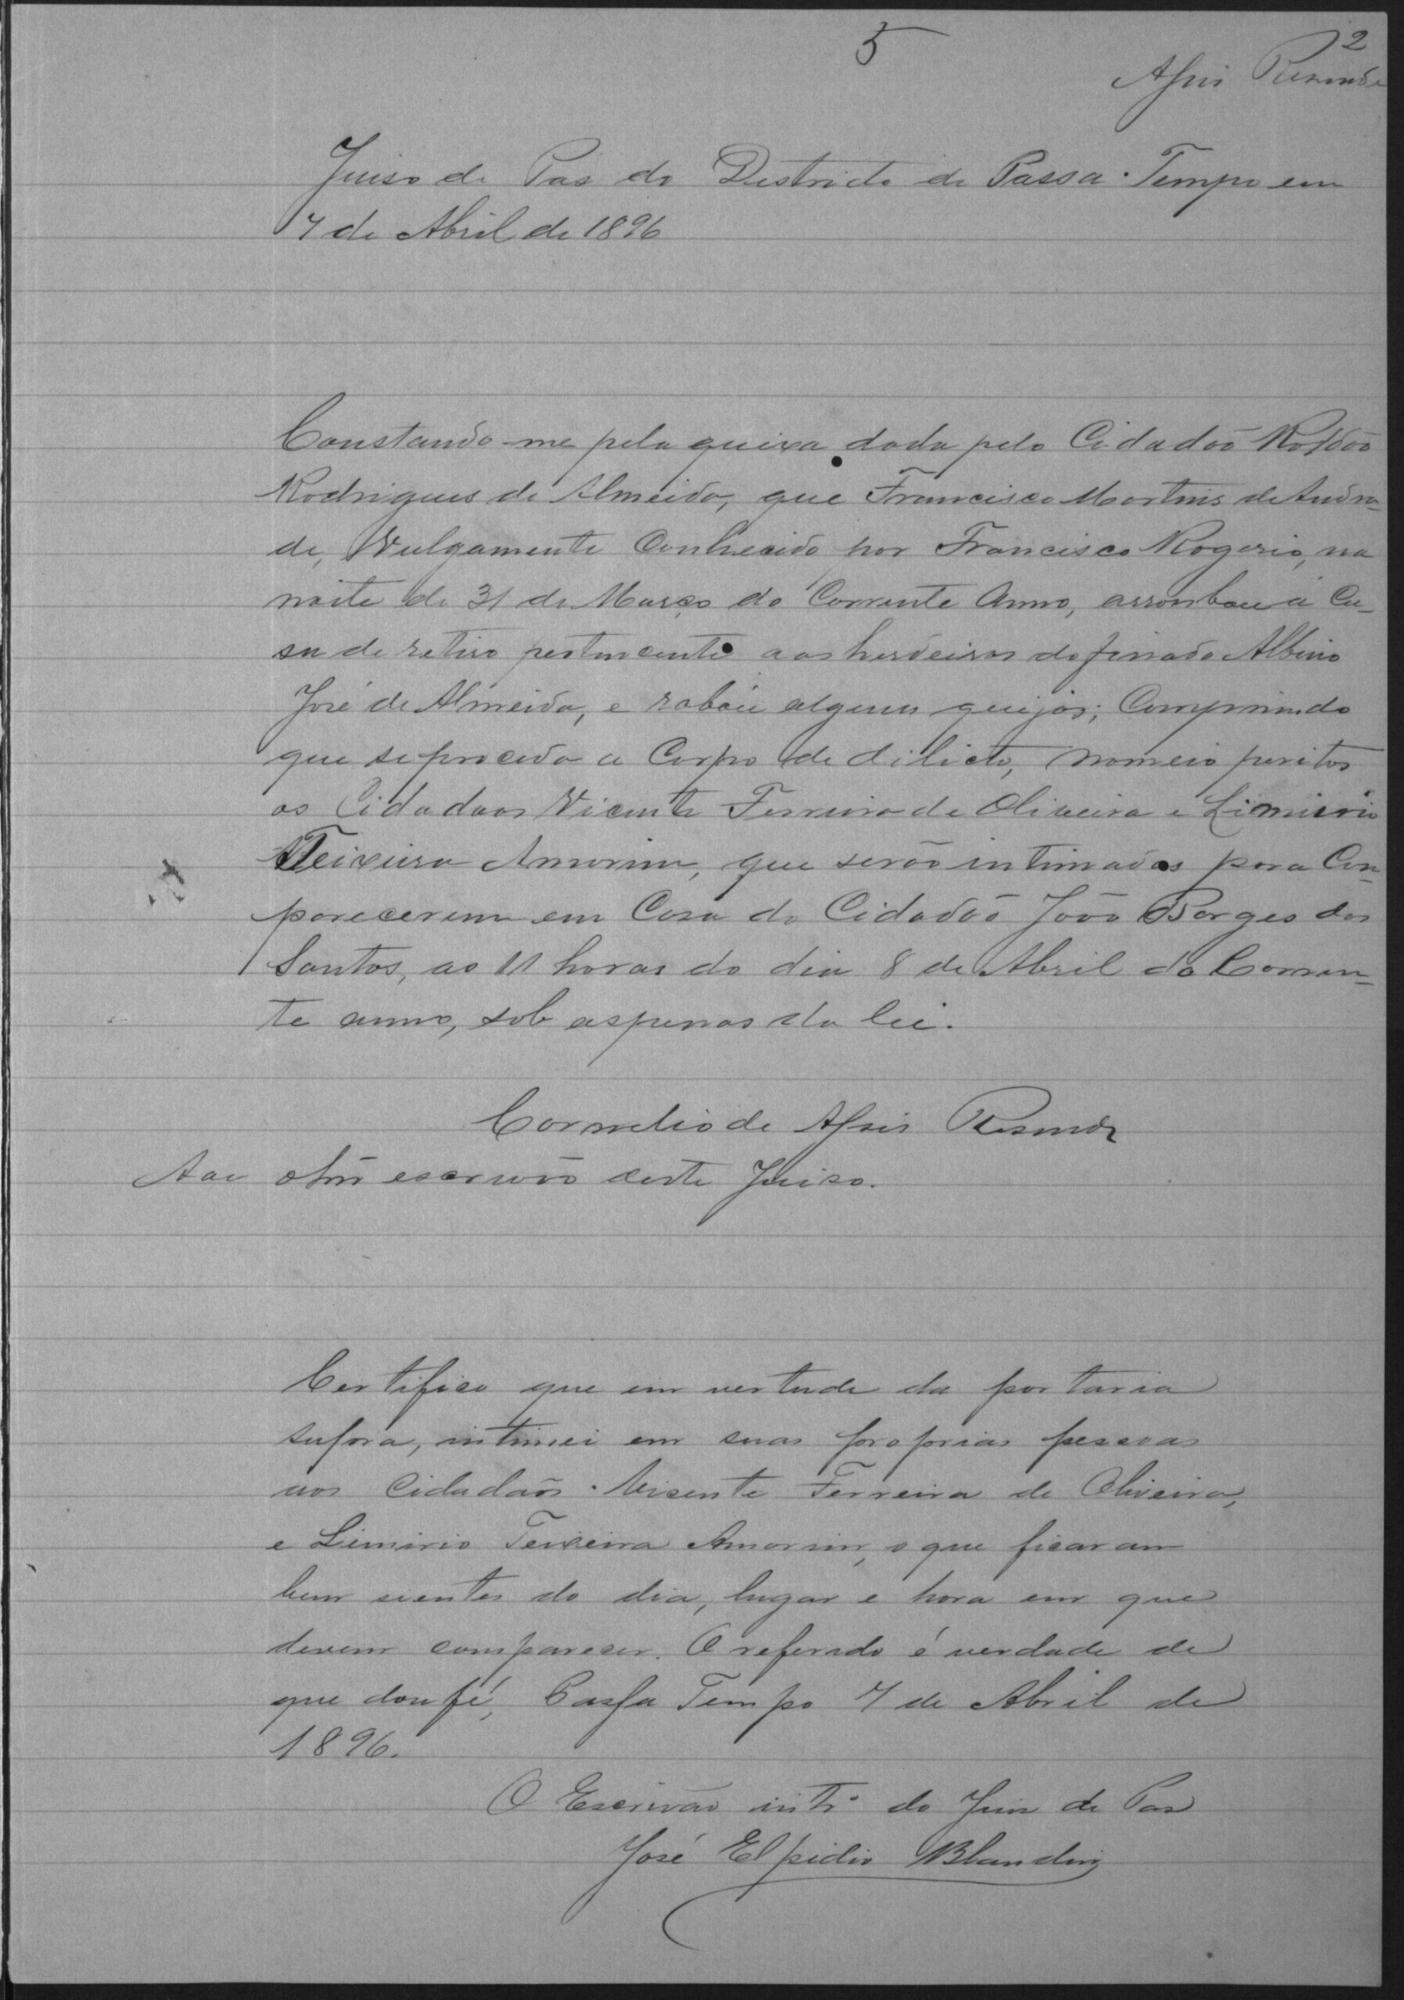 5
2
Assis Resende
Juiso de Pas do Destricto de Passa-Tempo em
7 de Abril de 1896
Constando-me pela queixa dada pelo Cidadão Roldão
Rodrigues de Almeida, que Francisco Martins de Andra-
de, Vulgamente Conhecido por Francisco Rogerio, na
noite de 31 de Março do Corrente Anno, arrombou a Ca-
sa de retiro pertencente aos herdeiros do finado Albino
José de Almeida, e robou alguns queijos; Comprindo
que se proceda a Corpo de dilicto, nomeio peritos
os Cidadaos Vicente Ferreira de Oliveira e Limirio
Teixeira Amorim, que serão intimados para Com-
parecerem em Casa do Cidadão João Borges dos
Santos, as 11 horas do dia 8 de Abril do Corren-
te anno, sob as penas da lei.
Cornelio de Assis Resende
Ao escrivão deste Juiso.
Certifico que em vertude da portaria
supra, intimei em suas proprias pessoas
aos Cidadãos Vicente Ferreira de Oliveira,
e Limirio Teixeira Amorim, o que ficaram
bem sientes do dia, lugar e hora em que
devem comparecer. O referido é verdade de
que dou fé, Passa Tempo 7 de Abril de
1896.
O Escrivão intr.º do Juiz de Paz
José Elpidio Blandin